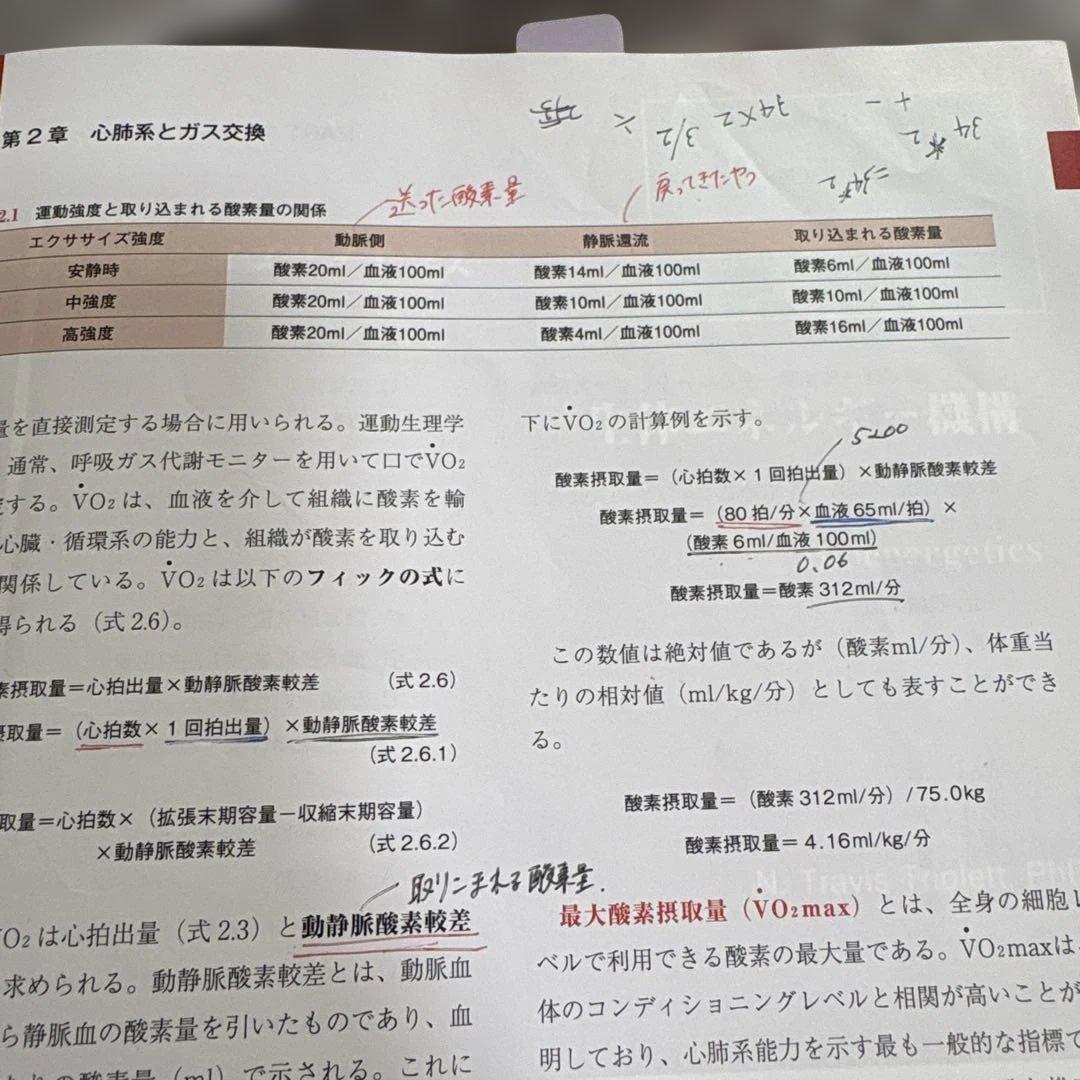 第2章 心肺系とガス交換
送った酸素量
戻ってきたやつ
34×2
3/2
34
2.1 運動強度と取り込まれる酸素量の関係
エクササイズ強度 動脈側 静脈還流 取り込まれる酸素量
安静時 酸素20ml／血液100ml 酸素14ml／血液100ml 酸素6ml／血液100ml
中強度 酸素20ml／血液100ml 酸素10ml／血液100ml 酸素10ml／血液100ml
高強度 酸素20ml／血液100ml 酸素4ml／血液100ml 酸素16ml／血液100ml
量を直接測定する場合に用いられる。運動生理学
通常、呼吸ガス代謝モニターを用いて口でV̇O₂
定する。V̇O₂は、血液を介して組織に酸素を輸
心臓・循環系の能力と、組織が酸素を取り込む
関係している。V̇O₂は以下のフィックの式に
得られる（式2.6）。
素摂取量＝心拍出量×動静脈酸素較差 （式2.6）
摂取量＝（心拍数×1回拍出量）×動静脈酸素較差
（式2.6.1）
取量＝心拍数×（拡張末期容量－収縮末期容量）
×動静脈酸素較差 （式2.6.2）
取りこまれる酸素量.
V̇O₂は心拍出量（式2.3）と動静脈酸素較差
求められる。動静脈酸素較差とは、動脈血
ら静脈血の酸素量を引いたものであり、血
の酸素量（ml）で示される。これに
下にV̇O₂の計算例を示す。
5200
酸素摂取量＝（心拍数×1回拍出量）×動静脈酸素較差
酸素摂取量＝（80拍/分×血液65ml/拍）×
（酸素6ml/血液100ml）
0.06
酸素摂取量＝酸素312ml/分
この数値は絶対値であるが（酸素ml/分）、体重当
たりの相対値（ml/kg/分）としても表すことができ
る。
酸素摂取量＝（酸素312ml/分）/75.0kg
酸素摂取量＝4.16ml/kg/分
N. Travis Triplett, PhD
最大酸素摂取量（V̇O₂max）とは、全身の細胞レ
ベルで利用できる酸素の最大量である。V̇O₂maxは、
体のコンディショニングレベルと相関が高いことが
明しており、心肺系能力を示す最も一般的な指標で